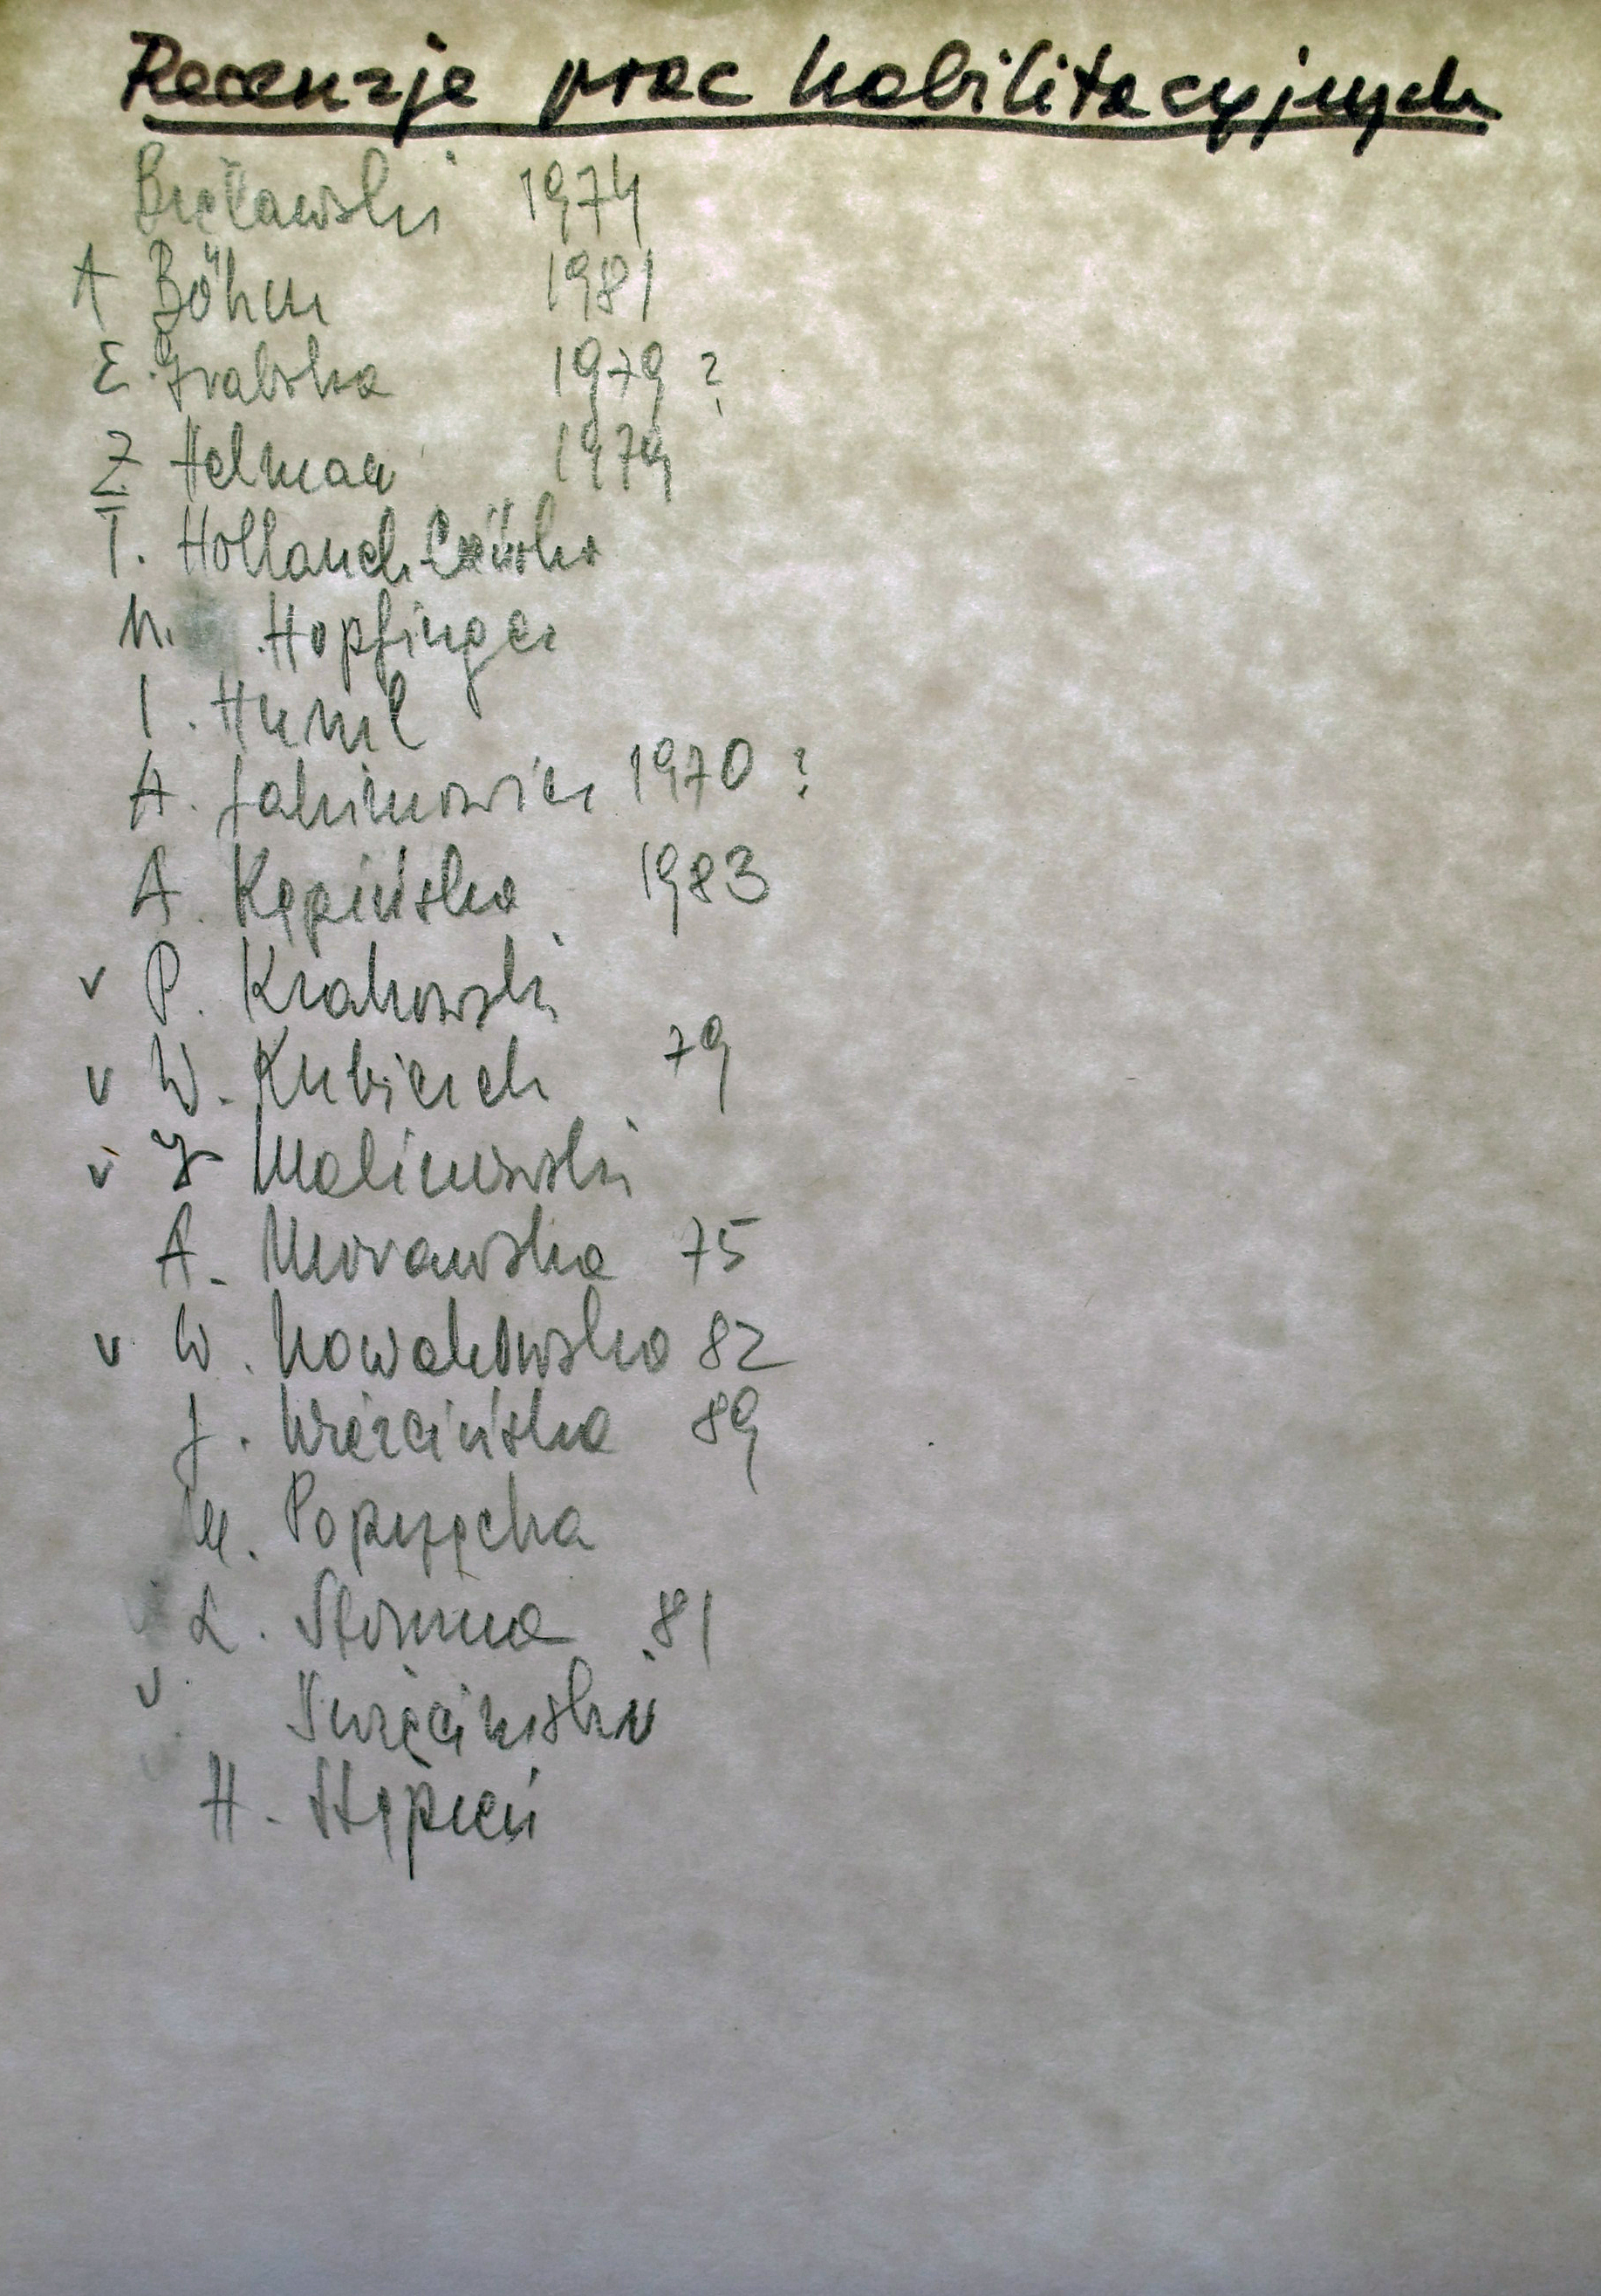 Recenzje prac habilitacyjnych
1974
A Böhm 1981
E. Grabska 1979 ?
Z Helman 1979
I. Holland
M. Hopfinger
I. Huml
A. Jakimowicz 1970 ?
A. Kępińska 1983
v P. Krakowski
v W. Kubiach 79
v J Malinowski
A. Morawska 75
v W. Nowakowska 82
J. Wiercińska 89
M. Poprzęcka
L. Stomma 81
v
H. Stępień